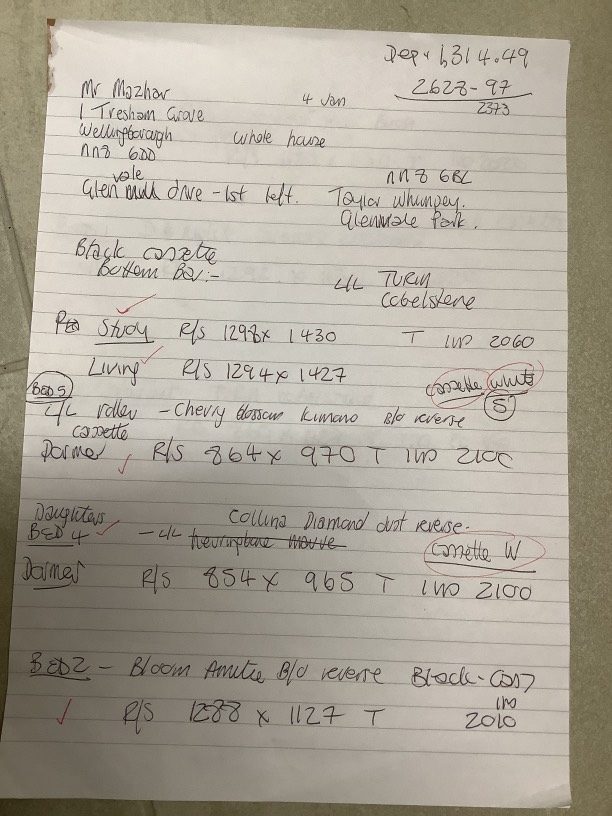 Dep. 1,314.49
Mr Mazhar 4 Jan 2628-97
2373
1 Tresham Grove
Wellingborough whole house
NN8 6DD
NN8 6BL
vale
Glen drive - 1st left. Taylor Whimpey.
Glenvale Park.
Black cassette
Bottom Bar:-
L/L TURIN
Cobelstone
Study R/S 1298 x 1430 T IWO 2060
Living R/S 1294 x 1427
cassette white
BED 5 5
L/L roller - Cherry blossom Kimono B/O reverse
cassette
Dormer R/S 864 x 970 T IWO 2100
Daughters Collina Diamond dust reverse.
BED 4 - L/L herringbone mauve cassette W
Dormer R/S 854 x 965 T IWO 2100
BED 2 - Bloom Amitie B/O reverse Black-
IWO
R/S 1288 x 1127 T 2010